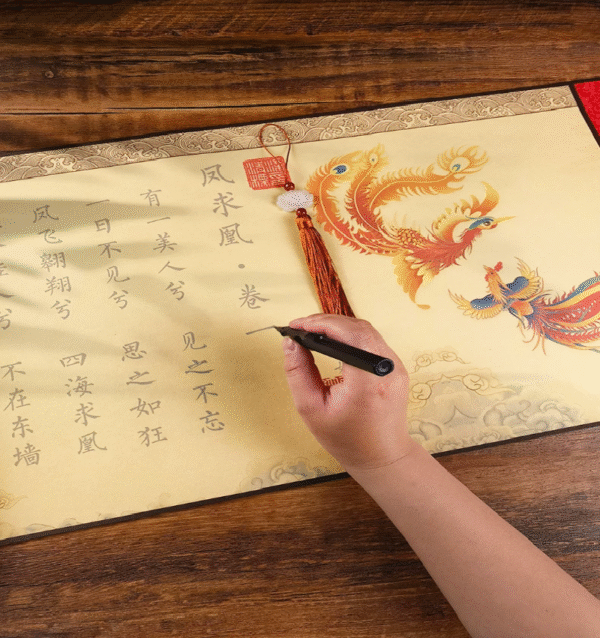 凤求凰·卷一
有一美人兮 见之不忘
一日不见兮 思之如狂
凤飞翱翔兮 四海求凰
佳人兮 不在东墙